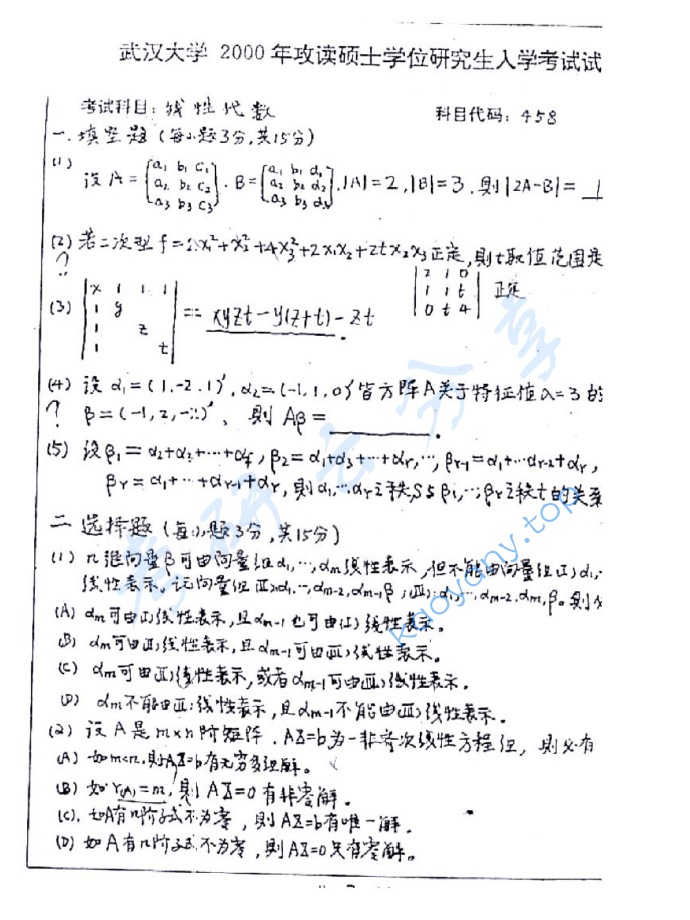 武汉大学 2000年攻读硕士学位研究生入学考试试
考试科目：线性代数 科目代码：458
一.填空题(每小题3分,共15分)
(1) 设A=[a₁ b₁ c₁; a₂ b₂ c₂; a₃ b₃ c₃], B=[a₁ b₁ d₁; a₂ b₂ d₂; a₃ b₃ d₃], |A|=2, |B|=3, 则|2A-B|= 1
(2) 若二次型f=2x₁²+x₂²+4x₃²+2x₁x₂+2tx₂x₃正定,则t取值范围是
?
|2 1 0; 1 1 t; 0 t 4| 正定
(3) |x 1 1 1; 1 y; 1 z; 1 t| = xyzt-y(z+t)-zt.
(4) 设α₁=(1,-2,1)′, α₂=(-1,1,0)′皆方阵A关于特征值λ=3的
? β=(-1,2,-2)′, 则Aβ=________.
(5) 设β₁=α₂+α₃+…+αᵣ, β₂=α₁+α₃+…+αᵣ,…, βᵣ₋₁=α₁+…αᵣ₋₂+αᵣ,
βᵣ=α₁+…+αᵣ₋₁+αᵣ, 则α₁,…,αᵣ之秩S与β₁,…,βᵣ之秩t的关系
二 选择题(每小题3分,共15分)
(1) n维向量β可由向量组α₁,…,αₘ线性表示,但不能由向量组(I)α₁,
线性表示。记向量组(II):α₁,…,αₘ₋₂,αₘ₋₁,β;(III):α₁,…,αₘ₋₂,αₘ,β。则
(A) αₘ可由(II)线性表示,且αₘ₋₁也可由(III)线性表示。
(B) αₘ可由(II)线性表示,且αₘ₋₁可由(III)线性表示。
(C) αₘ可由(II)线性表示,或者αₘ₋₁可由(III)线性表示.
(D) αₘ不能由(II)线性表示,且αₘ₋₁不能由(III)线性表示.
(2) 设A是m×n阶矩阵.AX=b为一非齐次线性方程组,则必有
(A) 如m<n,则AX=b有无穷多组解。
(B) 如r(A)=m,则AX=0有非零解.
(C). 如A有n阶子式不为零,则AX=b有唯一解.
(D) 如A有n阶子式不为零,则AX=0只有零解.
考研云分享
kaoyany.top